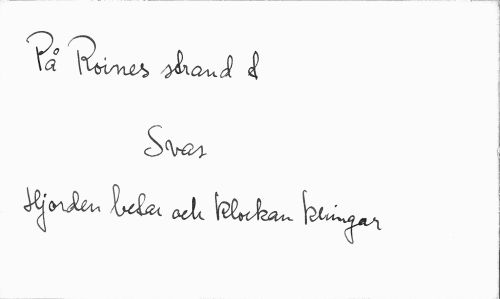 På Roines strand
Svar
Hjorden betar och klockan klingar